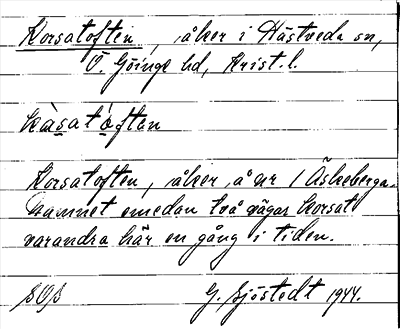 Korsatoften, åker i Hästveda sn,
Ö. Göinge hd, Krist. l.
kàsatóftan
Korsatoften, åker å nr 1 Äskeberga.
Namnet emedan två vägar korsat
varandra här en gång i tiden.
SOS
G. Sjöstedt 1944.